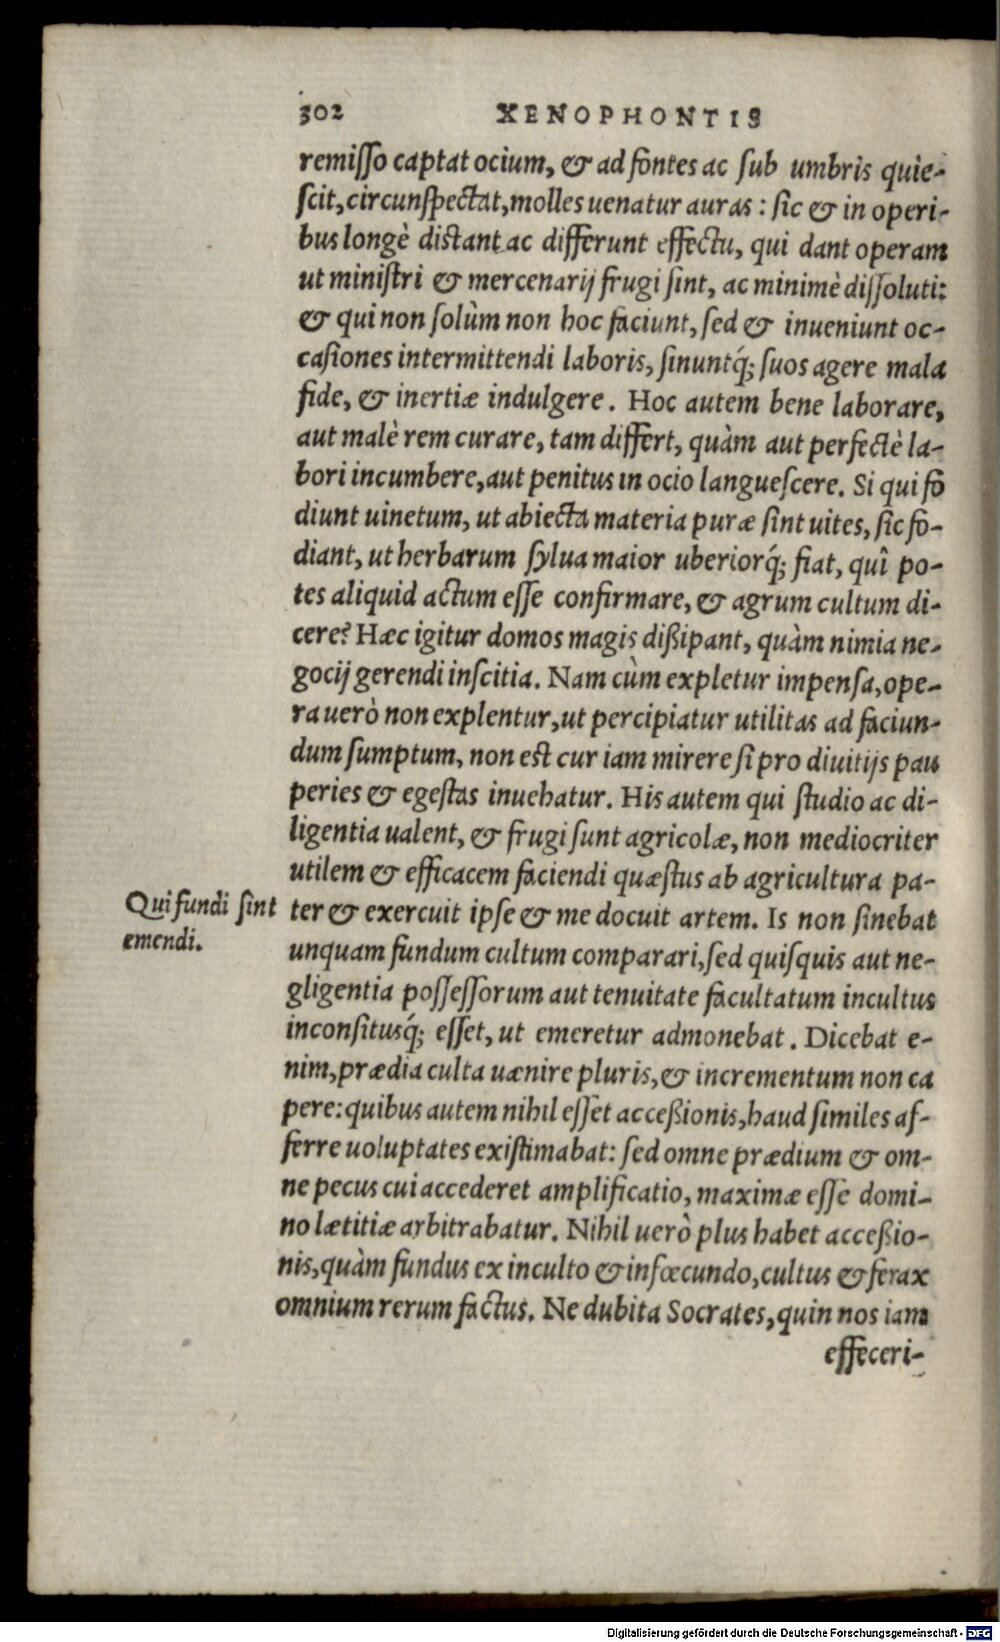 302 XENOPHONTIS
remiſſo captat ocium, & ad fontes ac ſub umbris quie-
ſcit, circunſpectat, molles uenatur auras: ſic & in operi-
bus longè diſtant ac differunt effectu, qui dant operam
ut miniſtri & mercenarij frugi ſint, ac minimè diſſoluti:
& qui non ſolùm non hoc faciunt, ſed & inueniunt oc-
caſiones intermittendi laboris, ſinuntq́; ſuos agere mala
fide, & inertiæ indulgere. Hoc autem bene laborare,
aut malè rem curare, tam differt, quàm aut perfectè la-
bori incumbere, aut penitus in ocio langueſcere. Si qui fo
diunt uinetum, ut abiecta materia puræ ſint uites, ſic fo-
diant, ut herbarum ſylua maior uberiorq́; fiat, quî po-
tes aliquid actum eſſe confirmare, & agrum cultum di-
cere? Hæc igitur domos magis dißipant, quàm nimia ne-
gocij gerendi inſcitia. Nam cùm expletur impenſa, ope-
ra uerò non explentur, ut percipiatur utilitas ad faciun-
dum ſumptum, non eſt cur iam mirere ſi pro diuitijs pau
peries & egeſtas inuehatur. His autem qui ſtudio ac di-
ligentia ualent, & frugi ſunt agricolæ, non mediocriter
utilem & efficacem faciendi quæſtus ab agricultura pa-
Qui fundi ſint
emendi.
ter & exercuit ipſe & me docuit artem. Is non ſinebat
unquam fundum cultum comparari, ſed quiſquis aut ne-
gligentia poſſeſſorum aut tenuitate facultatum incultus
inconſitusq́; eſſet, ut emeretur admonebat. Dicebat e-
nim, prædia culta uænire pluris, & incrementum non ca
pere: quibus autem nihil eſſet acceßionis, haud ſimiles af-
ferre uoluptates exiſtimabat: ſed omne prædium & om-
ne pecus cui accederet amplificatio, maximæ eſſe domi-
no lætitiæ arbitrabatur. Nihil uerò plus habet acceßio-
nis, quàm fundus ex inculto & infœcundo, cultus & ferax
omnium rerum factus. Ne dubita Socrates, quin nos iam
effeceri-
Digitalisierung gefördert durch die Deutsche Forschungsgemeinschaft - DFG